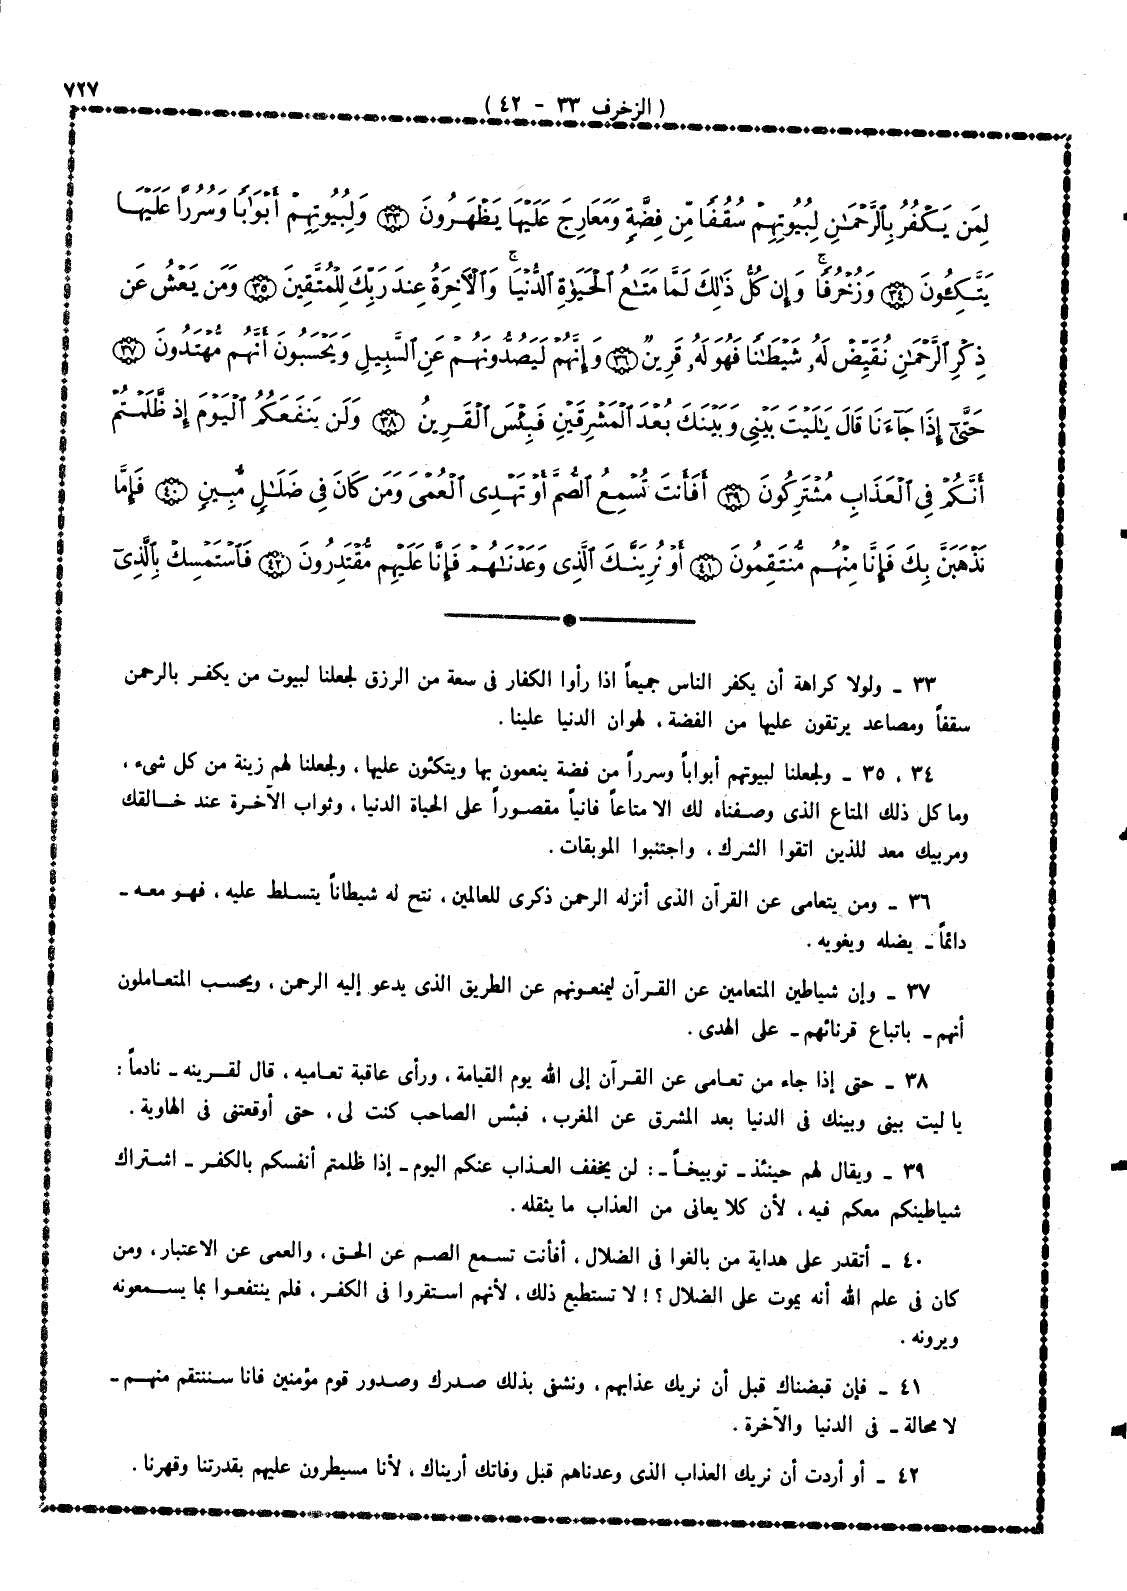 ٧٢٧
( الزخرف ٣٣ - ٤٢ )
لِمَن يَكْفُرُ بِالرَّحْمَٰنِ لِبُيُوتِهِمْ سُقُفًا مِّن فِضَّةٍ وَمَعَارِجَ عَلَيْهَا يَظْهَرُونَ ٣٣ وَلِبُيُوتِهِمْ أَبْوَابًا وَسُرُرًا عَلَيْهَا
يَتَّكِئُونَ ٣٤ وَزُخْرُفًا ۚ وَإِن كُلُّ ذَٰلِكَ لَمَّا مَتَاعُ الْحَيَوٰةِ الدُّنْيَا ۚ وَالْآخِرَةُ عِندَ رَبِّكَ لِلْمُتَّقِينَ ٣٥ وَمَن يَعْشُ عَن
ذِكْرِ الرَّحْمَٰنِ نُقَيِّضْ لَهُۥ شَيْطَٰنًا فَهُوَ لَهُۥ قَرِينٌ ٣٦ وَإِنَّهُمْ لَيَصُدُّونَهُمْ عَنِ السَّبِيلِ وَيَحْسَبُونَ أَنَّهُم مُّهْتَدُونَ ٣٧
حَتَّىٰٓ إِذَا جَآءَنَا قَالَ يَٰلَيْتَ بَيْنِي وَبَيْنَكَ بُعْدَ الْمَشْرِقَيْنِ فَبِئْسَ الْقَرِينُ ٣٨ وَلَن يَنفَعَكُمُ الْيَوْمَ إِذ ظَّلَمْتُمْ
أَنَّكُمْ فِي الْعَذَابِ مُشْتَرِكُونَ ٣٩ أَفَأَنتَ تُسْمِعُ الصُّمَّ أَوْ تَهْدِي الْعُمْيَ وَمَن كَانَ فِي ضَلَٰلٍ مُّبِينٍ ٤٠ فَإِمَّا
نَذْهَبَنَّ بِكَ فَإِنَّا مِنْهُم مُّنتَقِمُونَ ٤١ أَوْ نُرِيَنَّكَ الَّذِي وَعَدْنَٰهُمْ فَإِنَّا عَلَيْهِم مُّقْتَدِرُونَ ٤٢ فَاسْتَمْسِكْ بِالَّذِيٓ
٣٣ ـ ولولا كراهة أن يكفر الناس جميعاً اذا رأوا الكفار فى سعة من الرزق لجعلنا لبيوت من يكفر بالرحمن
سقفاً ومصاعد يرتقون عليها من الفضة ، لهوان الدنيا علينا .
٣٤ ، ٣٥ ـ ولجعلنا لبيوتهم أبواباً وسرراً من فضة ينعمون بها ويتكئون عليها ، ولجعلنا لهم زينة من كل شىء ،
وما كل ذلك المتاع الذى وصفناه لك الا متاعاً فانياً مقصوراً على الحياة الدنيا ، وثواب الآخرة عند خالقك
ومربيك معد للذين اتقوا الشرك ، واجتنبوا الموبقات .
٣٦ ـ ومن يتعامى عن القرآن الذى أنزله الرحمن ذكرى للعالمين ، نتح له شيطاناً يتسلط عليه ، فهو معه ـ
دائماً ـ يضله ويغويه .
٣٧ ـ وإن شياطين المتعامين عن القرآن ليمنعونهم عن الطريق الذى يدعو إليه الرحمن ، ويحسب المتعاملون
أنهم ـ باتباع قرنائهم ـ على الهدى .
٣٨ ـ حتى إذا جاء من تعامى عن القرآن إلى الله يوم القيامة ، ورأى عاقبة تعاميه ، قال لقرينه ـ نادماً :
يا ليت بينى وبينك فى الدنيا بعد المشرق عن المغرب ، فبئس الصاحب كنت لى ، حتى أوقعتنى فى الهاوية .
٣٩ ـ ويقال لهم حينئذ ـ توبيخاً ـ : لن يخفف العذاب عنكم اليوم ـ إذا ظلمتم أنفسكم بالكفر ـ اشتراك
شياطينكم معكم فيه ، لأن كلا يعانى من العذاب ما يثقله .
٤٠ ـ أتقدر على هداية من بالغوا فى الضلال ، أفأنت تسمع الصم عن الحق ، والعمى عن الاعتبار ، ومن
كان فى علم الله أنه يموت على الضلال ؟ ! لا تستطيع ذلك ، لأنهم استقروا فى الكفر ، فلم ينتفعوا بما يسمعونه
ويرونه .
٤١ ـ فإن قبضناك قبل أن نريك عذابهم ، ونشفى بذلك صدرك وصدور قوم مؤمنين فانا سننتقم منهم ـ
لا محالة ـ فى الدنيا والآخرة .
٤٢ ـ أو أردت أن نريك العذاب الذى وعدناهم قبل وفاتك أريناك ، لأنا مسيطرون عليهم بقدرتنا وقهرنا .